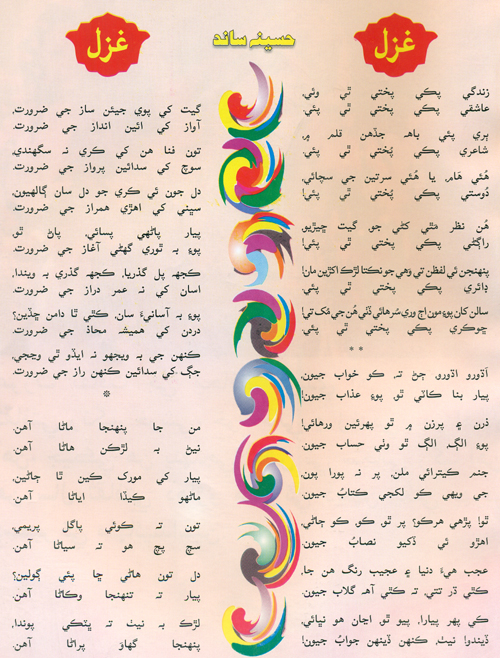 غزل
حسينه ساند
غزل
زندگي پڪي پختي ٿي وئي.
عاشقي پڪي پختي ٿي پئي.
ٻري پئي باهه جڏهن قلم ۾،
شاعري پڪي پُختي ٿي پئي!
هُئي هام، يا هُئي سرتين جي سچائي،
دُوستي پڪي پُختي ٿي پئي!
هُن نظر مٿي کڻي جو گيت ڇيڙيو
راڳڻي پڪي پختي ٿي پئي!
پنهنجن ئي لفظن تي وهي جو نڪتا لڙڪ اکڙين مان!
ڊائري پڪي پختي ٿي پئي!
سالن کان پوءِ مون اڄ وري سَرهائي ڏٺي هُن جي مُک تي!
ڇوڪري پڪي پختي ٿي پئي!
* *
اَڌورو اڌورو ڄڻ ته، ڪو خواب جيون!
پيار بنا ڪاٽي ٿو، پوءِ عذاب جيون!
ڌرن ۽ پرزن ۾ ٿو پهرئين ورهائي!
پوءِ الڳ، الڳ ٿو وٺي حساب جيون!
جنم ڪيترائي ملن، پر نه پورا پون
جي ويهي ڪو لکجي ڪتابُ جيون!
ٿو! پڙهي هرڪو؟ پر ٿو، ڪو ڪو ڄاڻي.
اهڙو ئي ڏکيو نصابُ جيون!
عجب هيءَ دنيا ۽ عجيب رنگ هن جا،
ڪٿي ڌر تتي ته ڪٿي آهه گلاب جيون!
ڪي پهر پيارا، پيو ٿو اڃان هو نڀائي،
ڏيندو! نيٺ، ڪنهن ڏينهن جوابُ جيون!
گيت کي پوي جيئن ساز جي ضرورت،
آواز کي ائين انداز جي ضرورت.
تون فنا هن کي ڪري نه سگهندي،
سوچ کي سدائين پرواز جي ضرورت.
دل جون ئي ڪري جو دل سان ڳالهيون،
سيني کي اهڙي همراز جي ضرورت.
پيار پاڻهي پسائي، پاڻ ٿو
پوءِ به ٿوري گهڻي آغاز جي ضرورت.
ڪجهه پل گذريا، ڪجهه گذري به ويندا،
اسان کي نه عمر دراز جي ضرورت.
پوءِ به آسانيءَ سان، ڪٿي ٿا دامن ڇڏين؟
دردن کي هميشه محاذ جي ضرورت.
ڪنهن جي به ويجهو نه ايڏو ٿي وڃجي،
جڳ کي سدائين ڪنهن راز جي ضرورت.
*
من جا پنهنجا ماڻا آهن.
نيڻ به لڙڪن هاڻا آهن.
پيار کي مورک ڪين ٿا ڄاڻين.
ماڻهو ڪيڏا اياڻا آهن.
تون ته ڪوئي پاگل پريمي.
سچ پچ هو ته سياڻا آهن.
دل تون هاڻي ڇا پئي ڳولين؟
پيار ته تنهنجا وڪاڻا آهن.
لڙڪ به نيٺ ته ڀٽڪي پوندا،
پنهنجا گهاوَ پراڻا آهن.